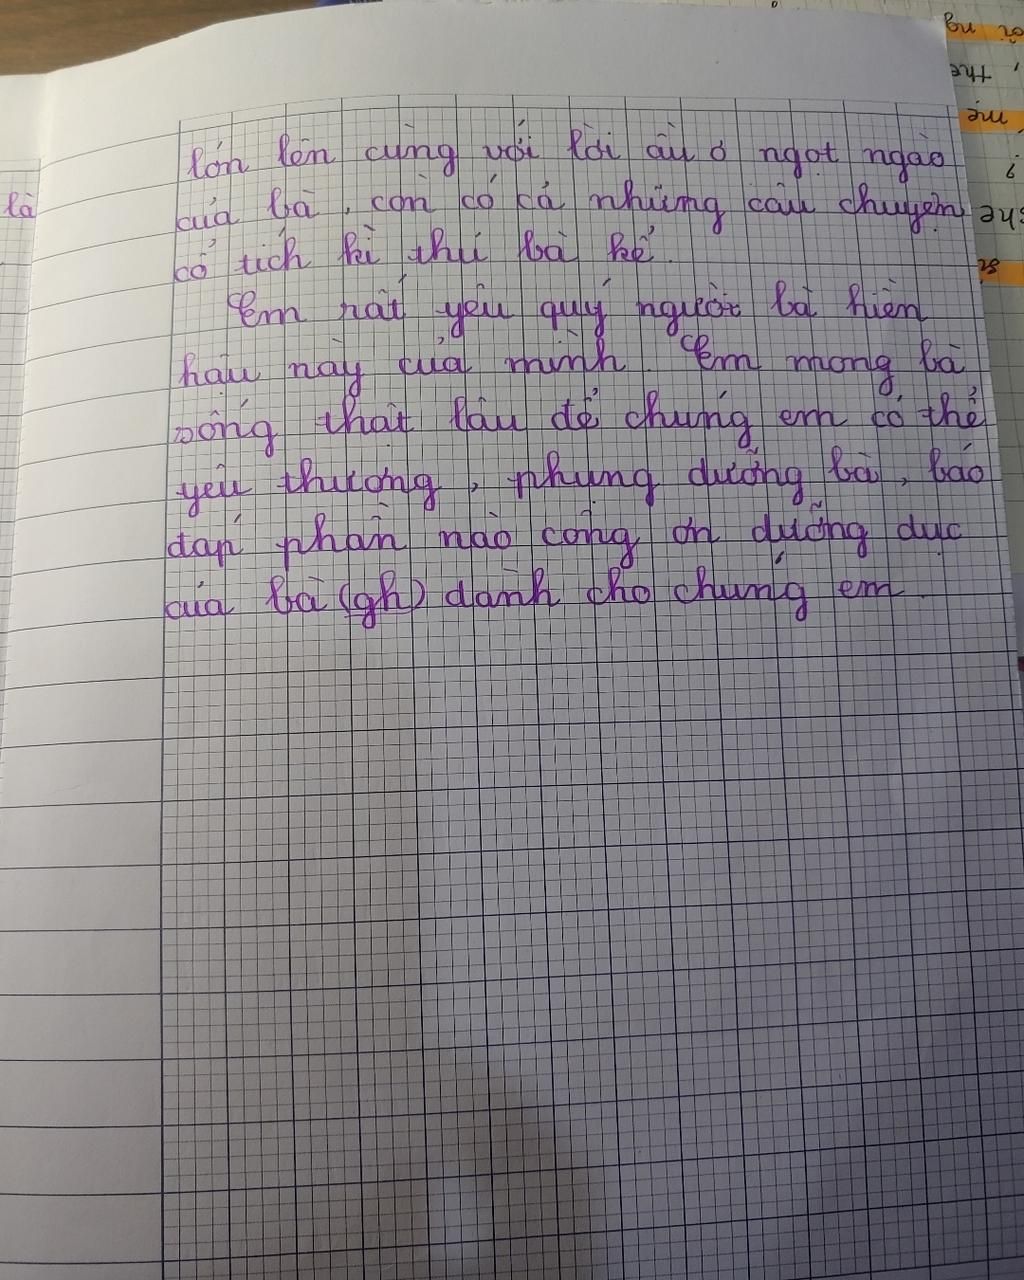 lớn lên cùng với lời ầu ơ ngọt ngào
của bà, còn có cả những câu chuyện
cổ tích kì thú bà kể.
Em rất yêu quý người bà hiền
hậu này của mình. Em mong bà
sống thật lâu để chúng em có thể
yêu thương, phụng dưỡng bà, báo
đáp phần nào công ơn dưỡng dục
của bà (gh) dành cho chúng em.
là